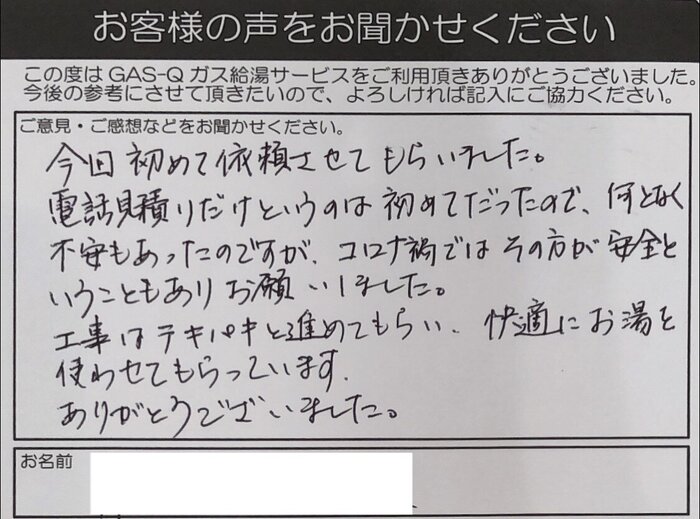 お客様の声をお聞かせください
この度はGAS-Qガス給湯サービスをご利用頂きありがとうございました。
今後の参考にさせて頂きたいので、よろしければ記入にご協力ください。
ご意見・ご感想などをお聞かせください。
今回初めて依頼させてもらいました。
電話見積りだけというのは初めてだったので、何となく
不安もあったのですが、コロナ禍ではその方が安全と
いうこともありお願いしました。
工事はテキパキと進めてもらい、快適にお湯を
使わせてもらっています.
ありがとうございました。
お名前